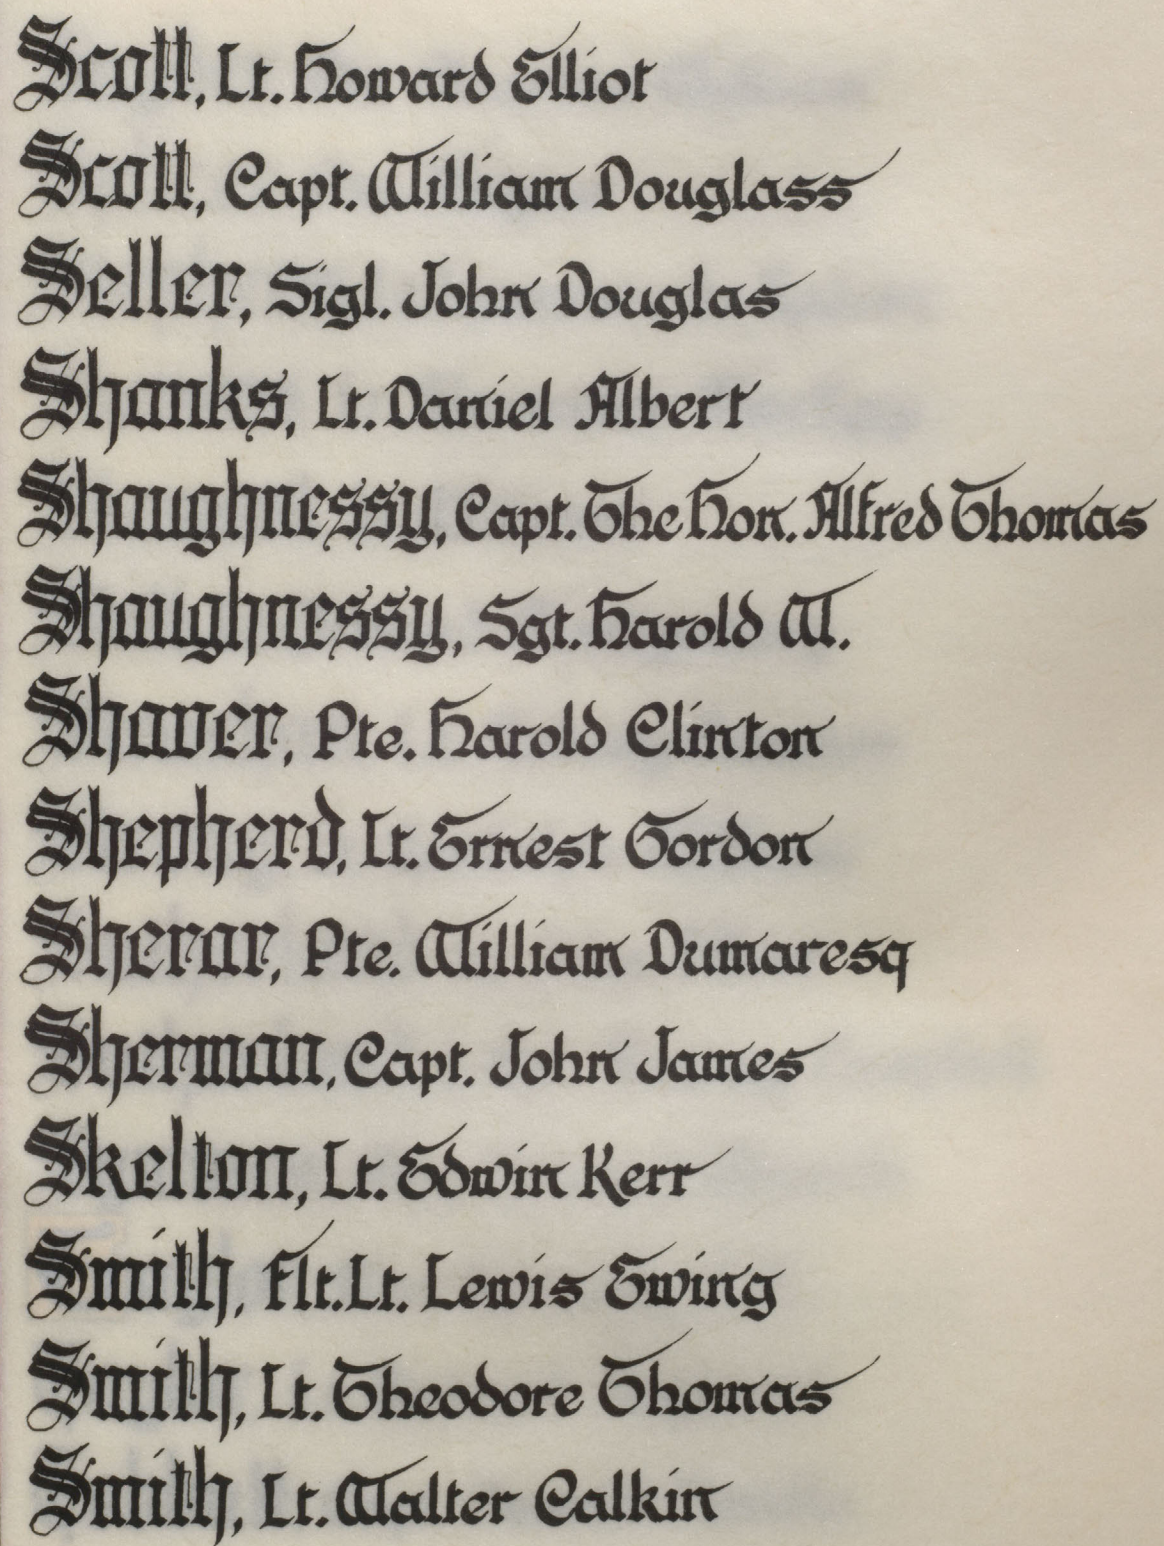 Scott, Lt. Howard Elliot
Scott, Capt. William Douglass
Seller, Sigl. John Douglas
Shanks, Lt. Daniel Albert
Shaughnessy, Capt. The Hon. Alfred Thomas
Shaughnessy, Sgt. Harold W.
Shaver, Pte. Harold Clinton
Shepherd, Lt. Ernest Gordon
Sherar, Pte. William Dumaresq
Sherman, Capt. John James
Skelton, Lt. Edwin Kerr
Smith, Flt. Lt. Lewis Ewing
Smith, Lt. Theodore Thomas
Smith, Lt. Walter Calkin